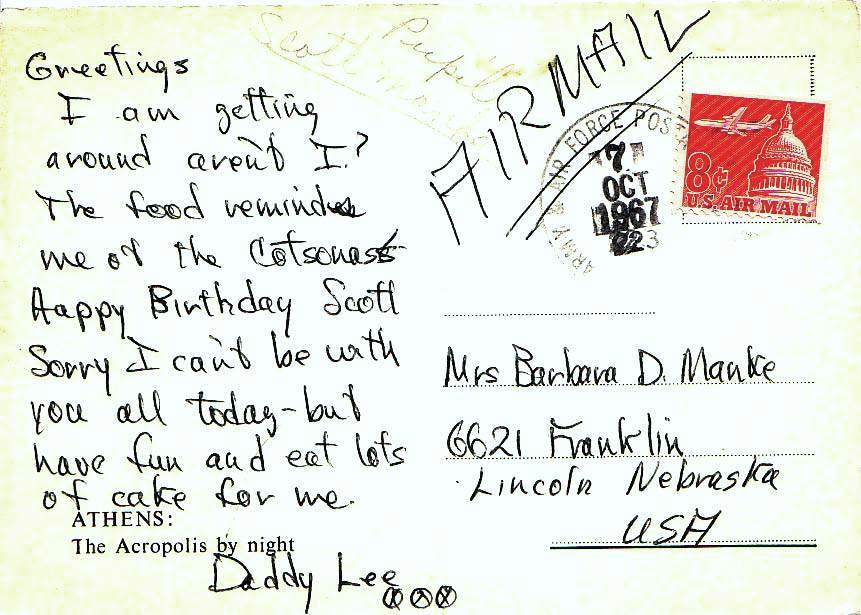 Greetings
I am getting
around aren't I?
The food reminds
me of the Cotsonas
Happy Birthday Scott
Sorry I can't be with
you all today - but
have fun and eat lots
of cake for me.
ATHENS:
The Acropolis by night
Daddy Lee
XXX
Pupil
Scott
AIRMAIL
ARMY & AIR FORCE POST
7
OCT
1967
223
8¢
U.S. AIR MAIL
Mrs Barbara D. Manke
6621 Franklin
Lincoln Nebraska
USA